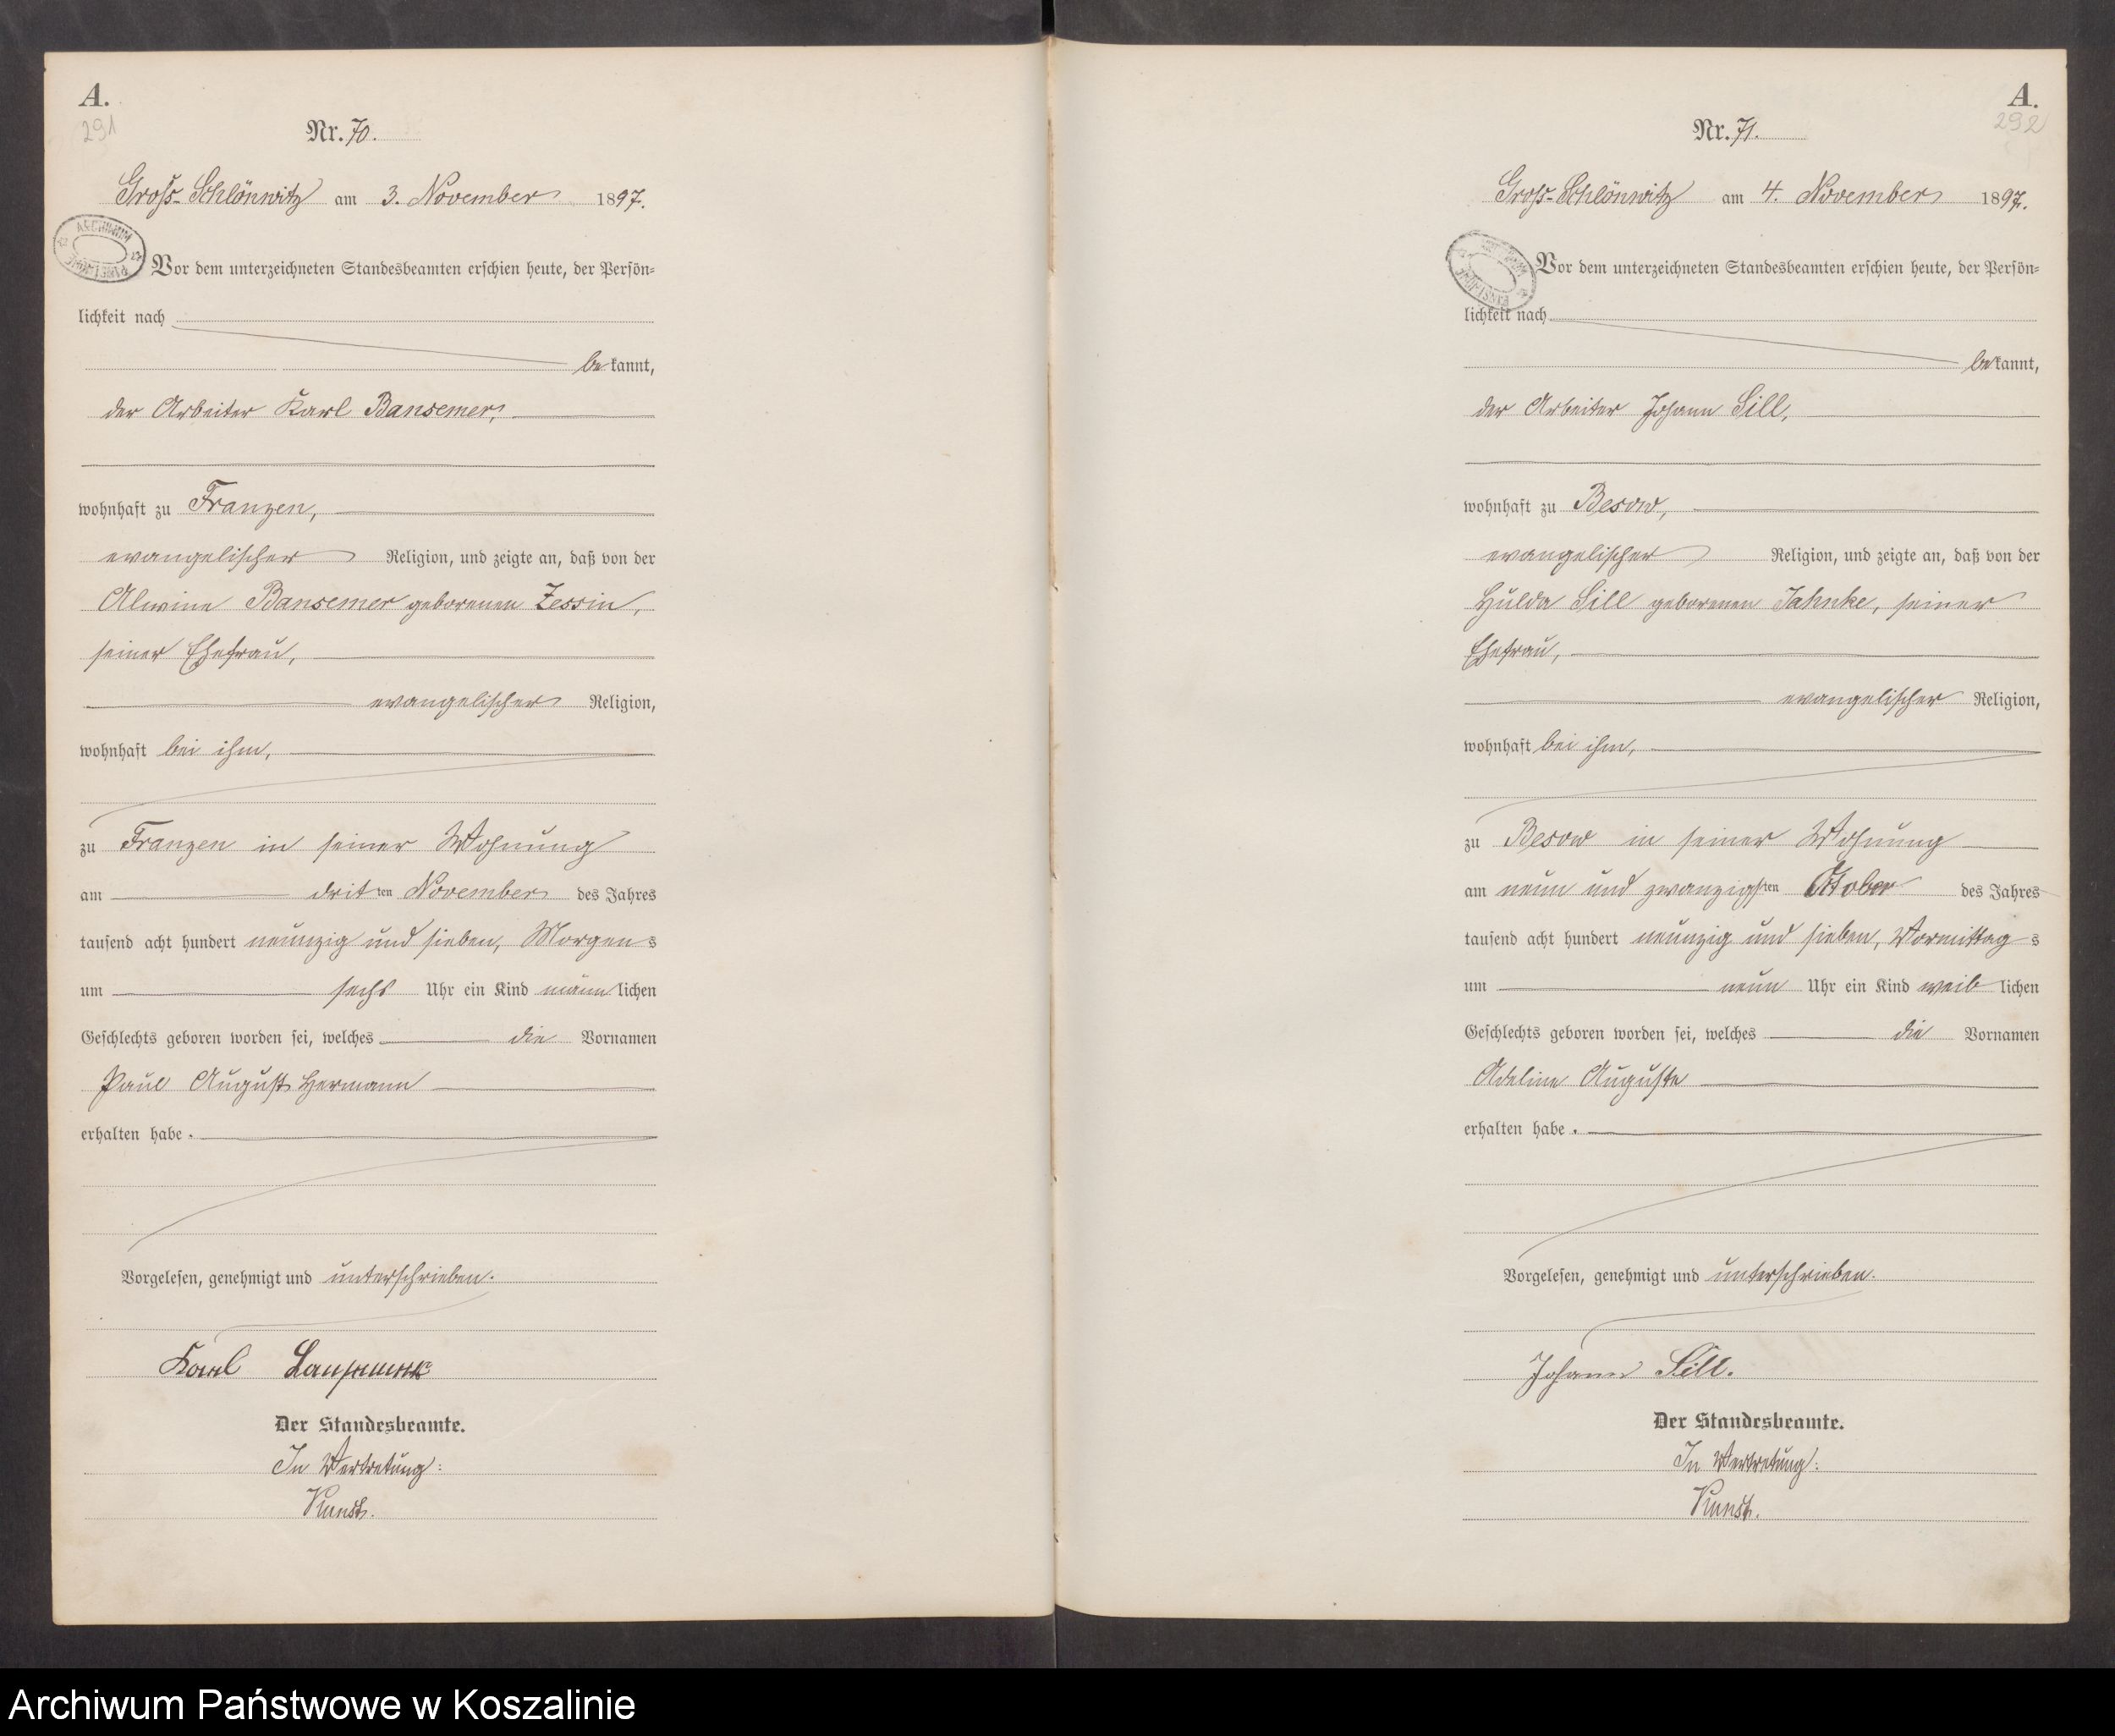 A.
291
Nr. 70.
Gross-Schlönwitz am 3. November 1897.
ARCHIWUM
Vor dem unterzeichneten Standesbeamten erschien heute, der Persön=
lichkeit nach
bekannt,
der Arbeiter Karl Bansemer,
wohnhaft zu Franzen,
evangelischer Religion, und zeigte an, daß von der
Alwine Bansemer geborenen Zessin,
seiner Ehefrau,
evangelischer Religion,
wohnhaft bei ihm,
zu Franzen in seiner Wohnung
am dritten November des Jahres
tausend acht hundert neunzig und sieben, Morgens
um sechs Uhr ein Kind männlichen
Geschlechts geboren worden sei, welches die Vornamen
Paul August Hermann
erhalten habe.
Vorgelesen, genehmigt und unterschrieben.
Karl
Der Standesbeamte.
In Vertretung:
A.
292
Nr. 71.
Gross-Schlönwitz am 4. November 1897.
Vor dem unterzeichneten Standesbeamten erschien heute, der Persön=
lichkeit nach
bekannt,
der Arbeiter Johann Sill,
wohnhaft zu Besow,
evangelischer Religion, und zeigte an, daß von der
Hulda Sill geborenen Jahnke, seiner
Ehefrau,
evangelischer Religion,
wohnhaft bei ihm,
zu Besow in seiner Wohnung
am neun und zwanzigsten Oktober des Jahres
tausend acht hundert neunzig und sieben, Vormittags
um neun Uhr ein Kind weiblichen
Geschlechts geboren worden sei, welches die Vornamen
Adeline Auguste
erhalten habe.
Vorgelesen, genehmigt und unterschrieben.
Johann Sill.
Der Standesbeamte.
In Vertretung:
Archiwum Państwowe w Koszalinie